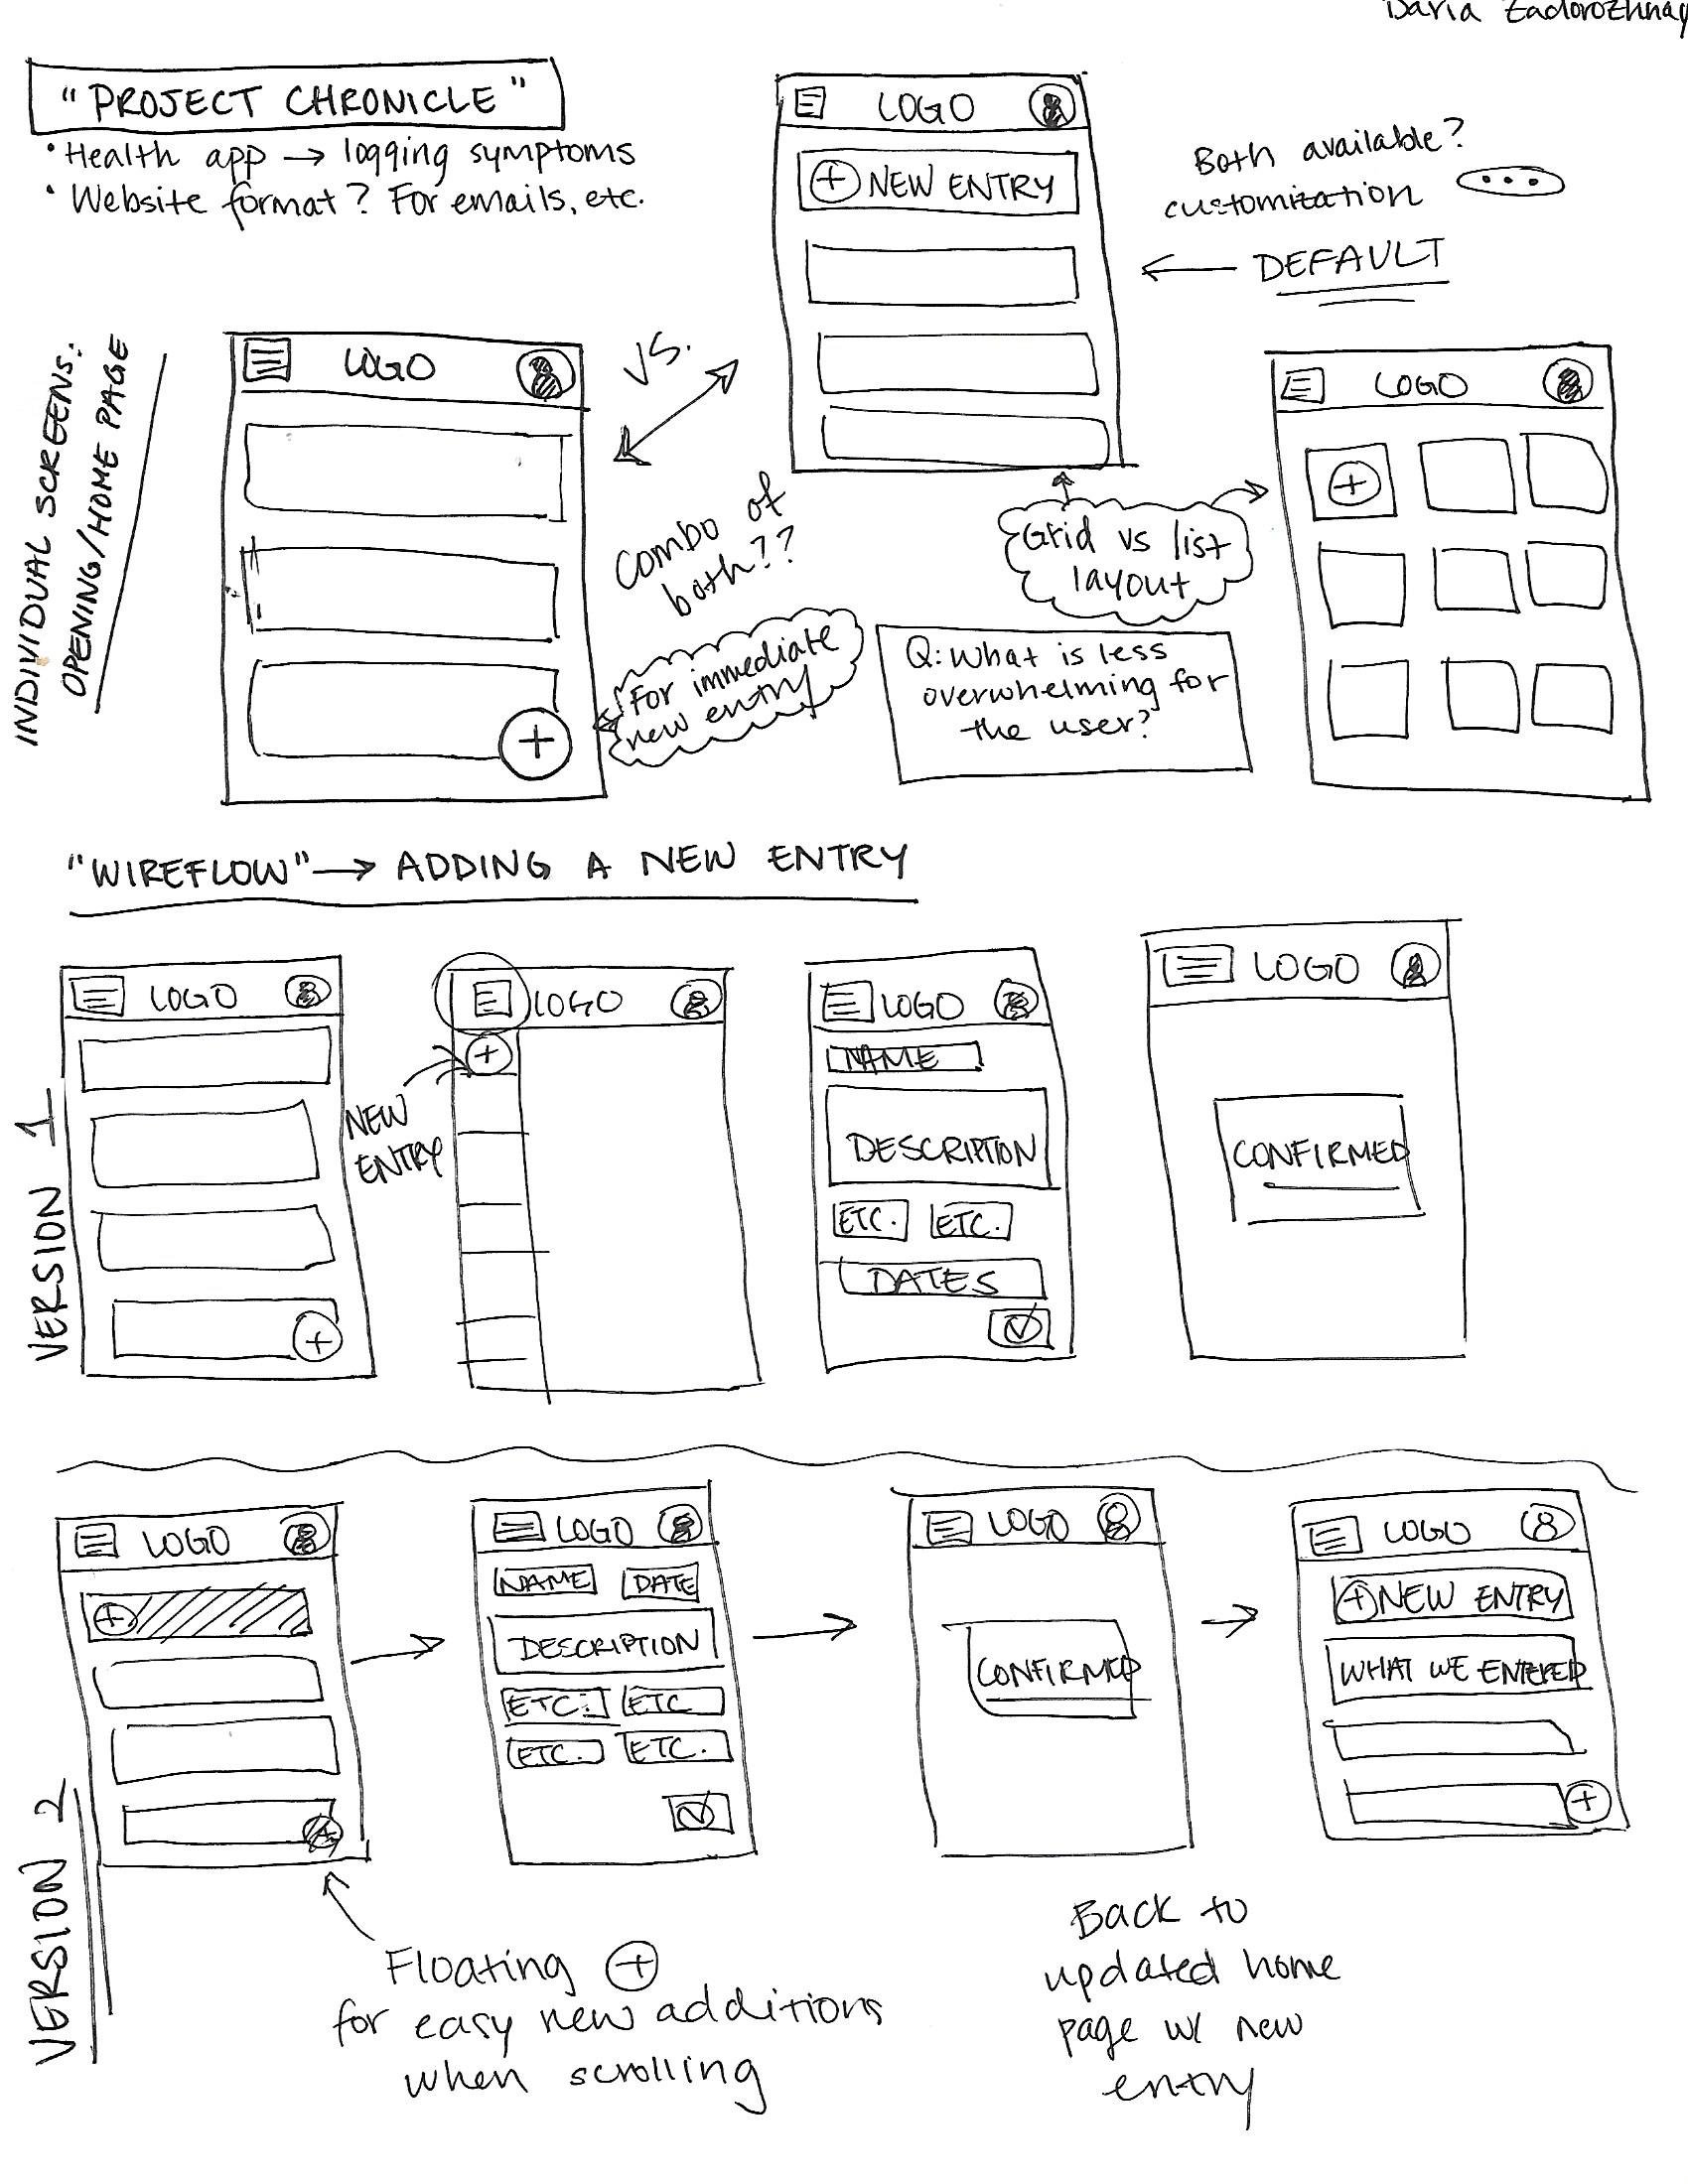 Daria Zadorozhnay
"PROJECT CHRONICLE"
• Health app → logging symptoms
• Website format? For emails, etc.
LOGO
+ NEW ENTRY
Both available?
customization ...
← DEFAULT
INDIVIDUAL SCREENS:
OPENING/HOME PAGE
LOGO
+
VS.
Combo of
both??
For immediate
new entry
Grid vs list
layout
Q: What is less
overwhelming for
the user?
LOGO
+
"WIREFLOW" → ADDING A NEW ENTRY
VERSION 1
LOGO
+
NEW
ENTRY
LOGO
+
LOGO
NAME
DESCRIPTION
ETC. ETC.
DATES
LOGO
CONFIRMED
VERSION 2
LOGO
+
+
LOGO
NAME DATE
DESCRIPTION
ETC. ETC
ETC. ETC.
LOGO
CONFIRMED
LOGO
+ NEW ENTRY
WHAT WE ENTERED
+
Floating +
for easy new additions
when scrolling
Back to
updated home
page w/ new
entry